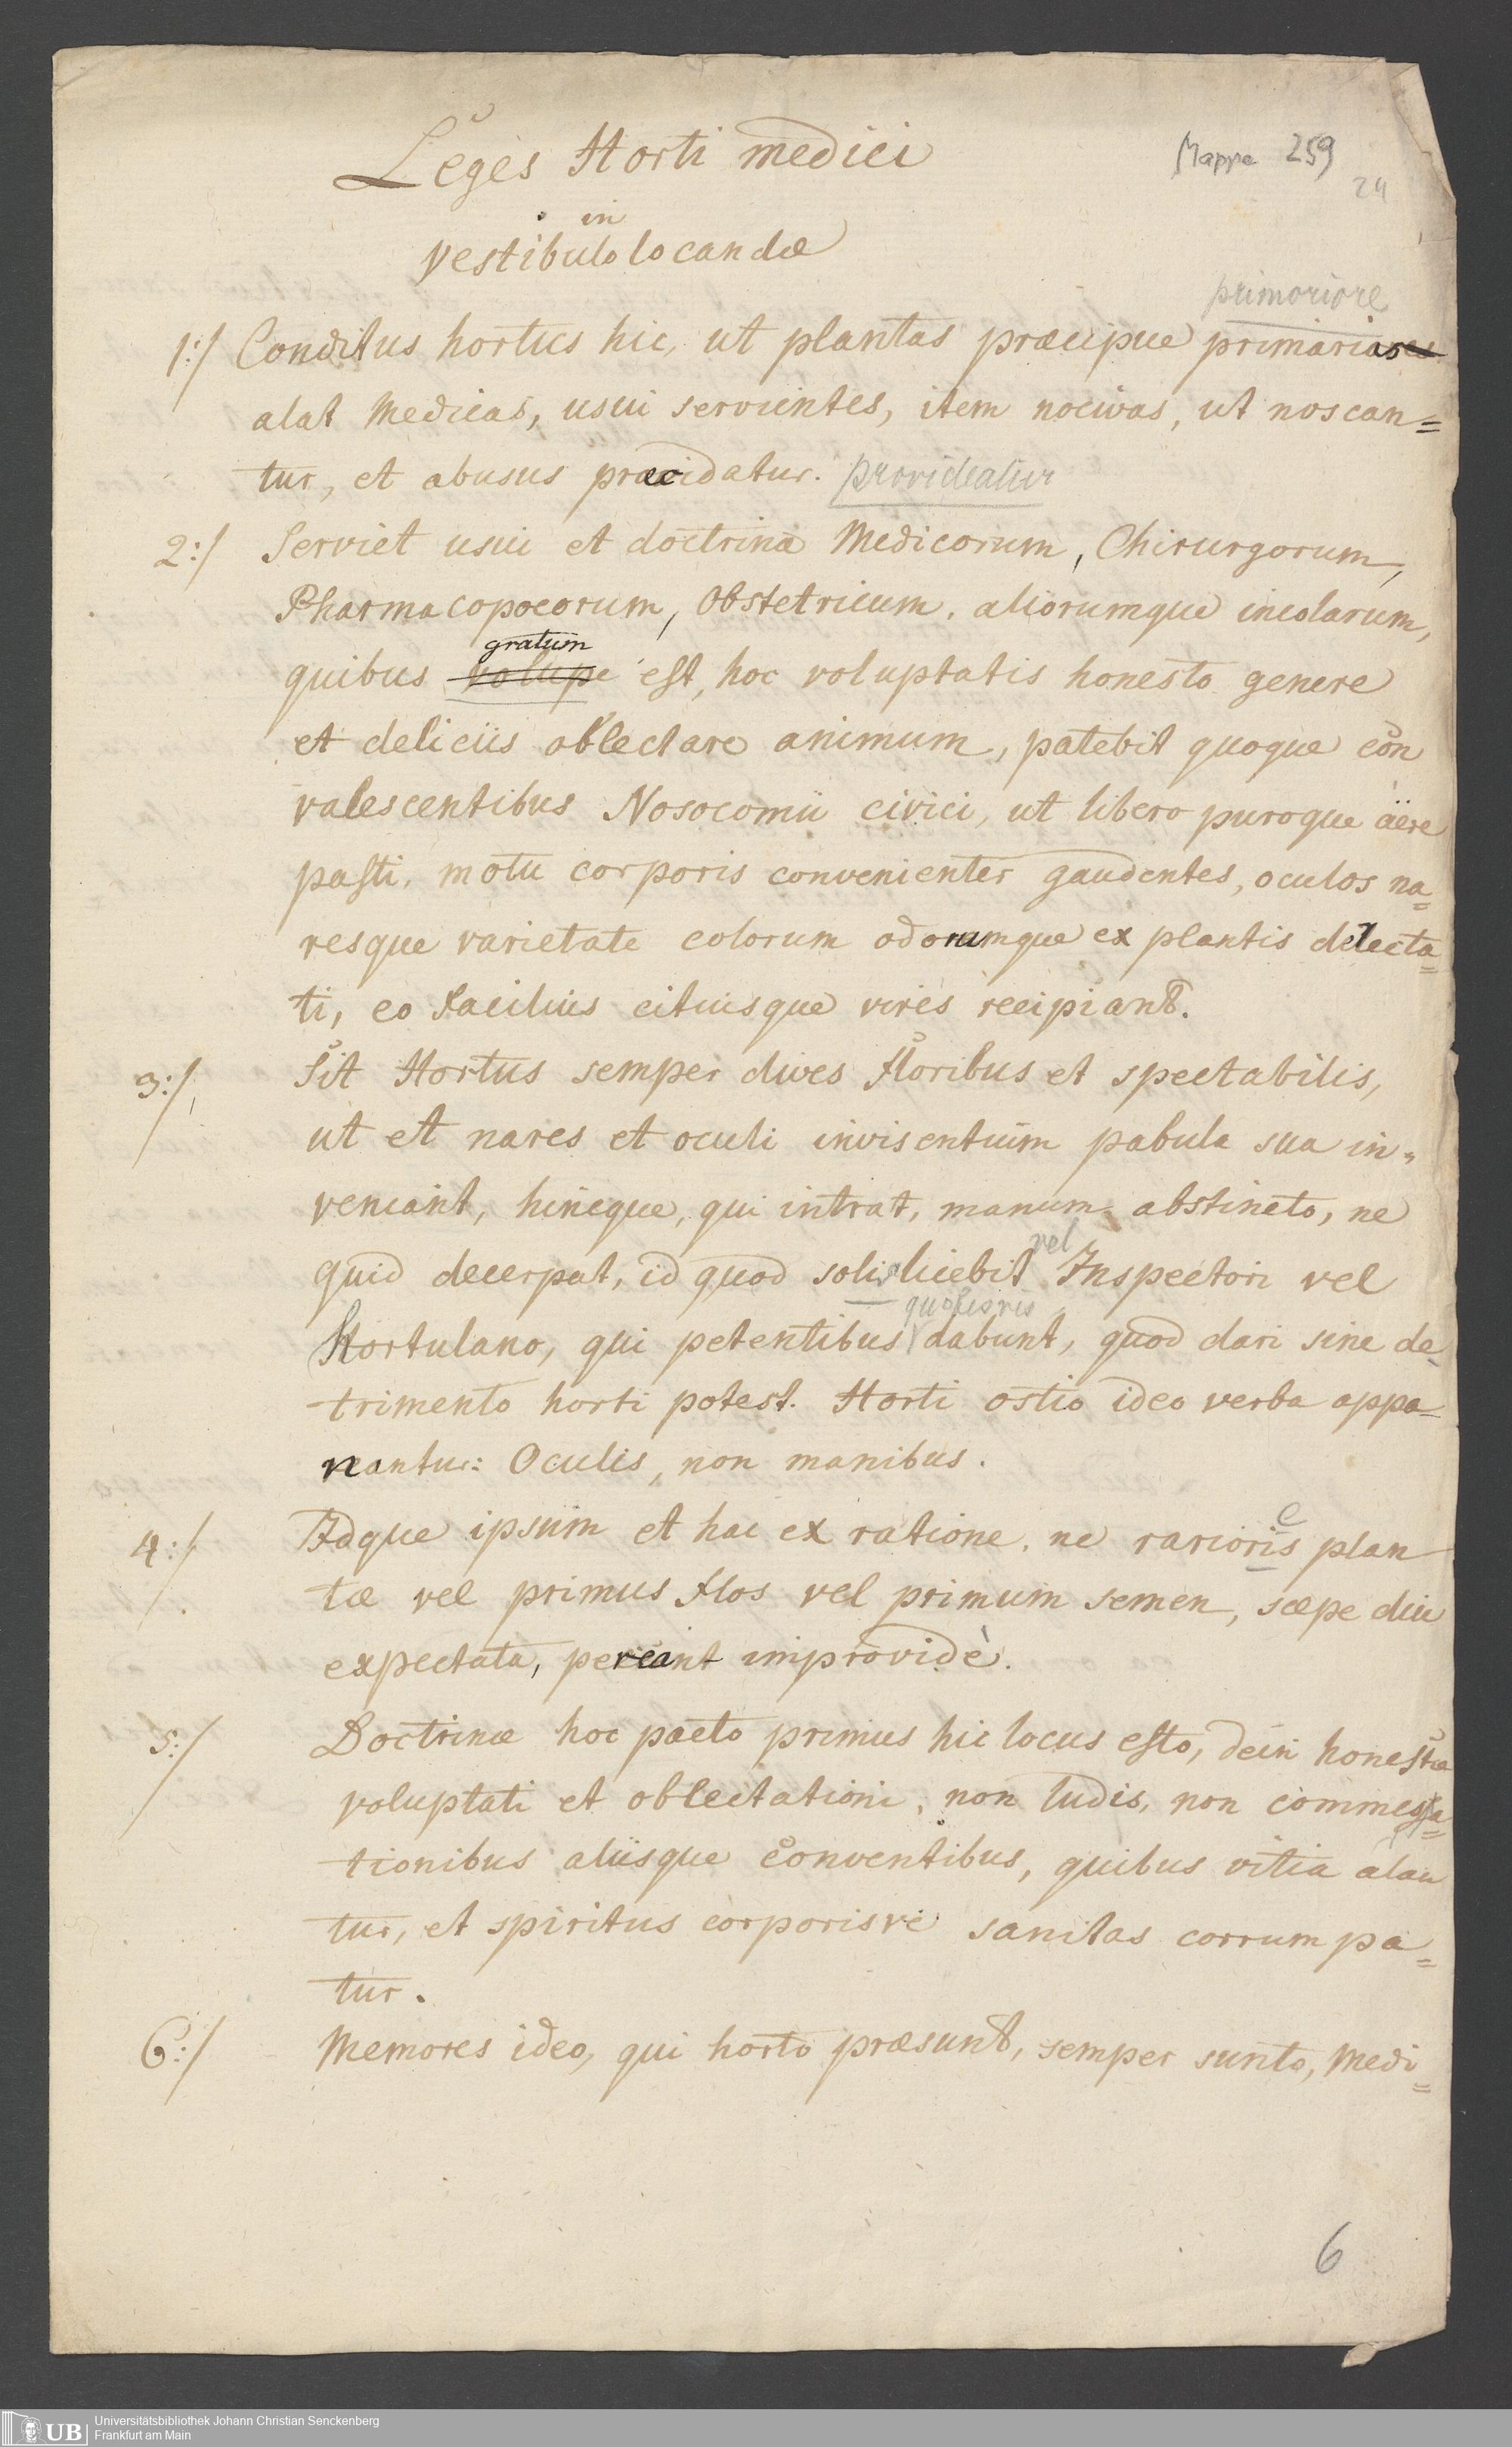 Leges Horti medici
Mappe 259
24
in
vestibulo locandæ
primoriore
1:/ Conditus hortus hic, ut plantas præcipue primariases
alat Medicas, usui servientes, item nocivas, ut noscan=
tur, et abusus præcidatur. provideatur
2:/ Serviet usui et doctrina Medicorum, Chirurgorum,
Pharmacopoeorum, Obstetricum, aliorumque incolarum,
gratum
quibus volupe est, hoc voluptatis honesto genere
et deliciis oblectare animum, patebit quoque con
valescentibus Nosocomii civici, ut libero puroque aëre
pasti, motu corporis convenienter gaudentes, oculos na=
resque varietate colorum odorumque ex plantis delecta=
ti, eo facilius citiusque vires recipiant.
3:/ Sit Hortus semper dives floribus et spectabilis,
ut et nares et oculi invisentium pabula sua in=
veniant, hincque, qui intrat, manum abstineto, ne
vel
quid decerpat, id quod solis licebit Inspectori vel
Hortulano, qui petentibus dabunt, quod dari sine de
trimento horti potest. Horti ostio ideo verba appa=
reantur: Oculis, non manibus.
e
4:/ Idque ipsum et hac ex ratione, ne rarioris plan
tæ vel primus flos vel primum semen, sæpe diu
expectata, pereant improvidè.
5:/ Doctrinæ hoc pacto primus hic locus esto, dein honestæ
voluptati et oblectationi, non ludis, non commessa=
tionibus aliisque conventibus, quibus vitia alan
tur, et spiritus corporisve sanitas corrumpa=
tur.
6:/ Memores ideo, qui horto præsunt, semper sunto, Medi=
6
UB
Universitätsbibliothek Johann Christian Senckenberg
Frankfurt am Main